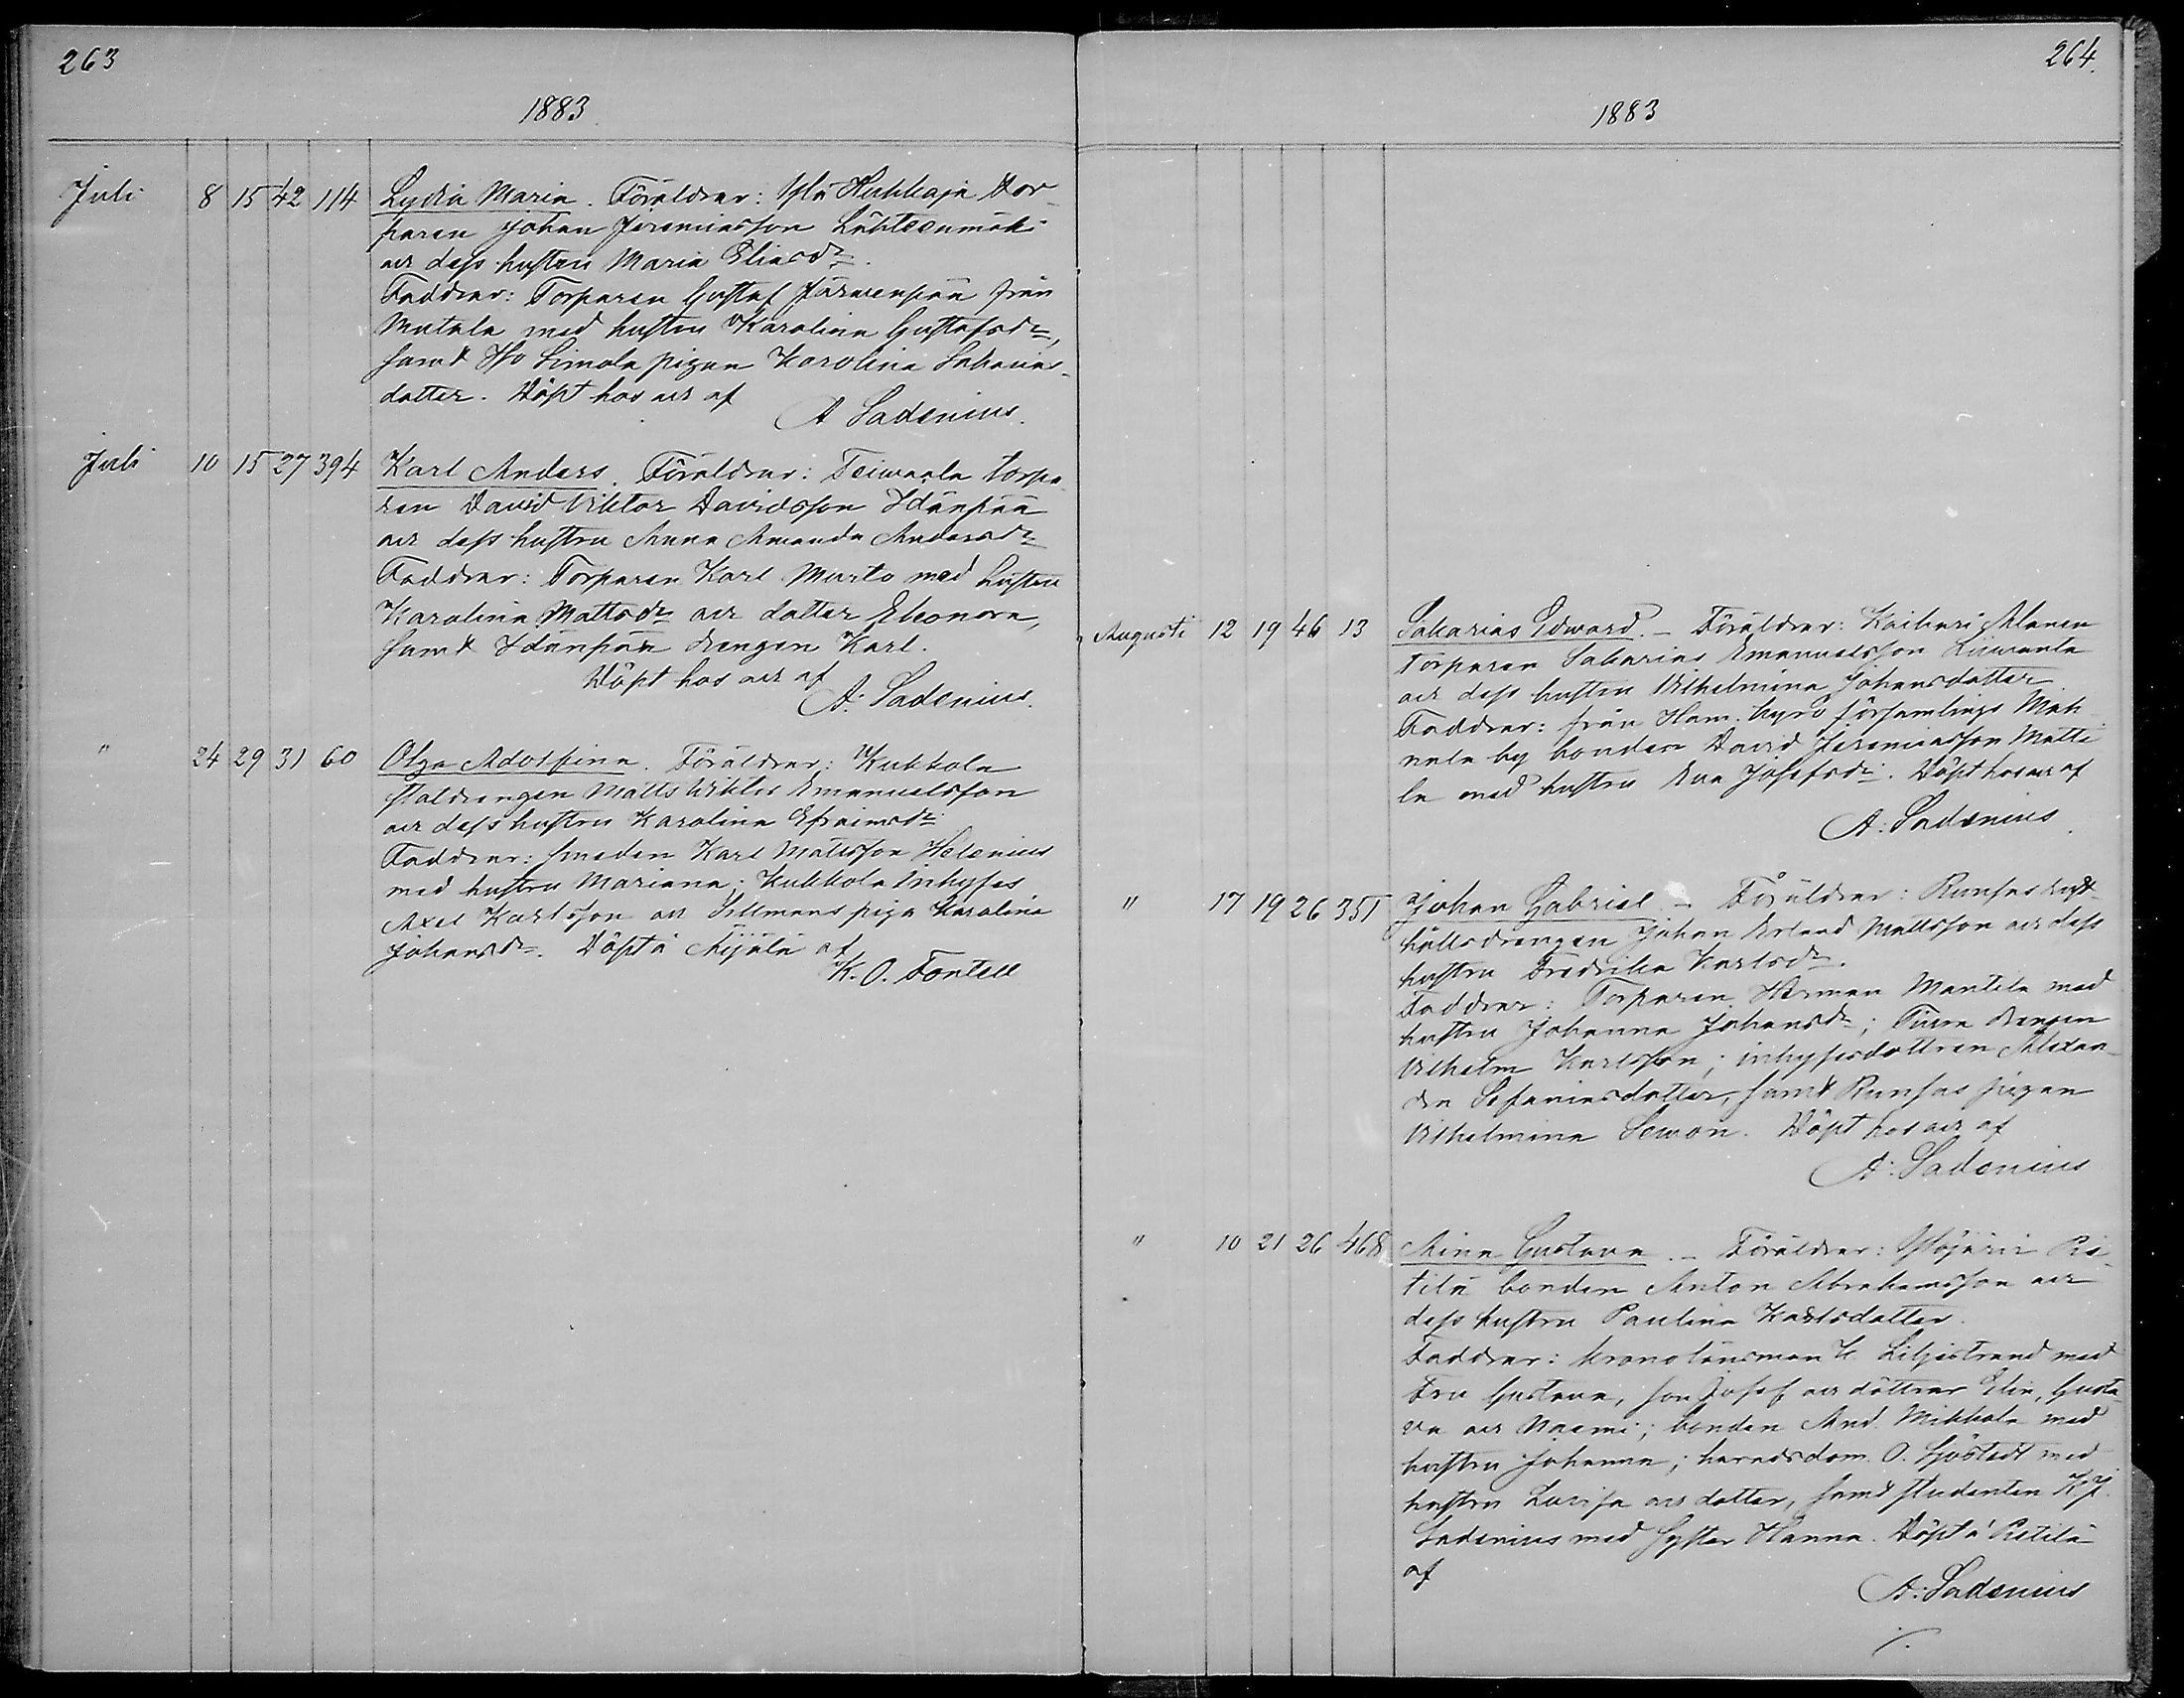 263
1883
Juli 8 15 42 114 Lydia Maria. Föräldrar: Yli Kukkaja Tor-
paren Johan Jeremiasson Lähteenmäki
och dess hustru Maria Eliasdr.
Faddrar: Torparen Gustaf Järvenpää från
Mutala med hustru Karolina Gustafsdr,
samt Yli Simola pigan Karolina Sakarias-
dotter. Döpt hos oss af
A Sadenius.
Juli 10 15 27 394 Karl Anders. Föräldrar: Teivaala torpa-
ren David Viktor Davidsson Idänpää
och dess hustru Anna Amanda Andersdr
Faddrar: Torparen Karl Murto med hustru
Karolina Mattsdr och dotter Eleonora,
samt Idänpää drengen Karl.
Döpt hos oss af
A. Sadenius.
" 24 29 31 60 Olga Adolfina. Föräldrar: Kukkola
staldrengen Matts Viktor Emanuelsson
och dess hustru Karolina Efraimsdr
Faddrar: smeden Karl Mattsson Helenius
med hustru Mariana; Kukkola inhyses
Axel Karlsson och Sillmans piga Karolina
Johansdr. Döpt å af
K. O. Fontell
264.
1883
Augusti 12 19 46 13 Sakarias Edward. - Föräldrar: Kaihari Alanen
torparen Sakarias Emanuelsson
och dess hustru Vilhelmina Johansdotter
Faddrar: från Ham. kyro församlings Mah-
nala by bonden David Jeremiasson Matti-
la med hustru Eva Josefsdr. Döpt hos oss af
A. Sadenius
" 17 19 26 351 Johan Gabriel. - Föräldrar: Runsas rust-
hållsdrengen Johan Erland Mattsson och dess
hustru Fredrika Karlsdr.
Faddrar: Torparen Herman Mantila med
hustru Johanna Johansdr; drengen
Vilhelm Karlsson; inhysesdottren Alexan-
dra Sefaniasdotter, samt Runsas pigan
Vilhelmina Semon. Döpt hos oss af
A. Sadenius
" 10 21 26 468 Aina Gustava. - Föräldrar: Ylöjärvi Pi-
tilä bonden Anton Abrahamsson och
dess hustru Paulina Karlsdotter.
Faddrar: kronolänsman K. Liljestrand med
Fru Gustava, son Josef och döttrar Elin, Gusta-
va och Naemi; bonden And. Mikkola med
hustru Johanna; heradsdom. O. Sjöstedt med
hustru Lovisa och dotter, samt studenten K. J.
Sadenius med syster Hanna. Döpt å Pitilä
af
A. Sadenius